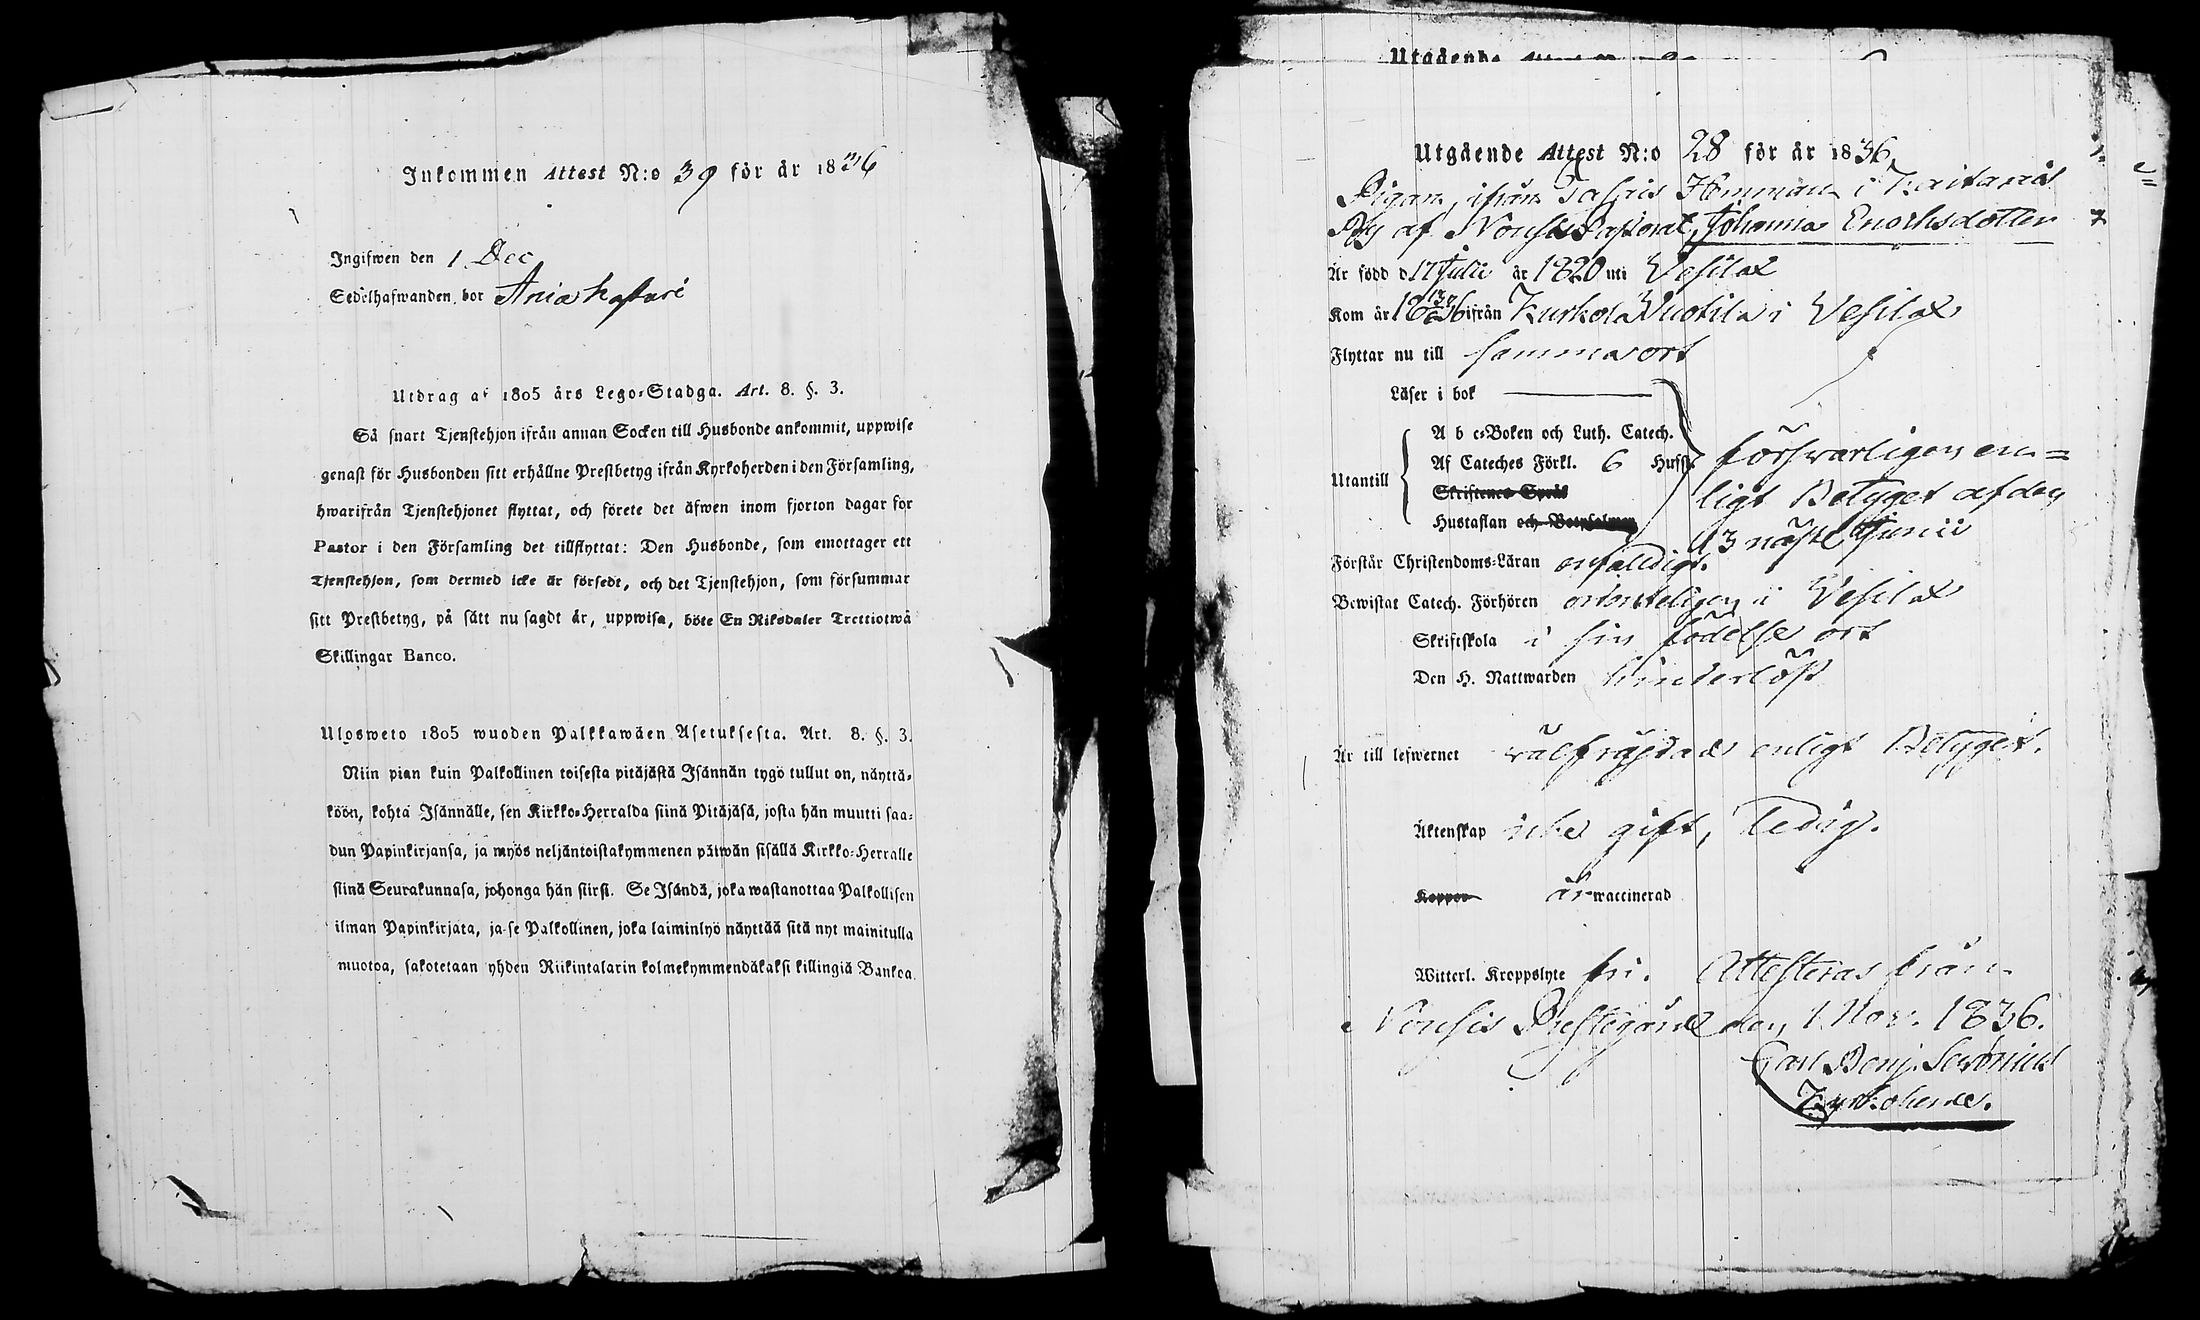 Inkommen Attest N:o 39 för är 1836
Ingifwen den 1 Dec
Sedelhafwanden bor Ania
Utdrag af 1805 års Lego-Stadga. Art. 8. §. 3.
Så snart Tjenstehjon ifrån annan Socken till Husbonde ankommit, uppwise
genast för Husbonden sitt erhållne Prestbetyg ifrån Kyrkoherden i den Församling,
hwarifrån Tjenstehjonet flyttat, och förete det äfwen inom fjorton dagar for
Pastor i den Församling det tillflyttat: Den Husbonde, som emottager ett
Tjenstehjon, som dermed icke är försedt, och det Tjenstehjon, som försummar
sitt Prestbetyg, på sätt nu sagdt är, uppwisa, böte En Riksdaler Trettiotwå
Skillingar Banco.
Ulosweto 1805 wuoden Palkkawäen Asetuksesta. Art. 8. §. 3.
Niin pian kuin Palkollinen toisesta pitäjästä Isännän tygö tullut on, näyttä-
köön, kohta Isännälle, sen Kirkko-Herralda siinä Pitäjäsä, josta hän muutti saa-
dun Papinkirjansa, ja myös neljäntoistakymmenen päiwän sisällä Kirkko-Herralle
siinä Seurakunnasa, johonga hän siirsi. Se Isändä, joka wastanottaa Palkollisen
ilman Papinkirjata, ja se Palkollinen, joka laiminlyö näyttää sitä nyt mainitulla
muotoa, sakotetaan yhden Riikintalarin kolmekymmendäkaksi killingiä Bankoa
Utgående
Utgående Attest N:o 28 för år 1836.
Pigan, ifrån Hemman i
By af Nousis Pastorat, Johanna Enochsdotter
Är född d. 17 Julii år 1820 uti Vesilax
Kom år 1836 ifrån Kurkola Nuotila i Vesilax
Flyttar nu till samma ort
Läser i bok
A b c-Boken och Luth. Catech.
Af Cateches Förkl. 6 Hufst.
Utantill
Skriftenes Språk
Hustaflan och
försvarligen en=
ligt Betyget af den
13 näst. Junii
Förstår Christendoms-Läran enfalldigt.
Bewistat Catech. Förhören ordenteligen i Vesilax
Skriftskola i sin födelse ort
Den H. Nattwarden hinderlöst
Är till lefwernet välfräjdad enligt Betyget.
Äktenskap icke gift, ledig.
Koppor är waccinerad
Witterl. Kroppslyte fri. Attesteras från
Nousis Prestegård den 1 Nov. 1836.
Carl Benj.
Kyrkoherde.